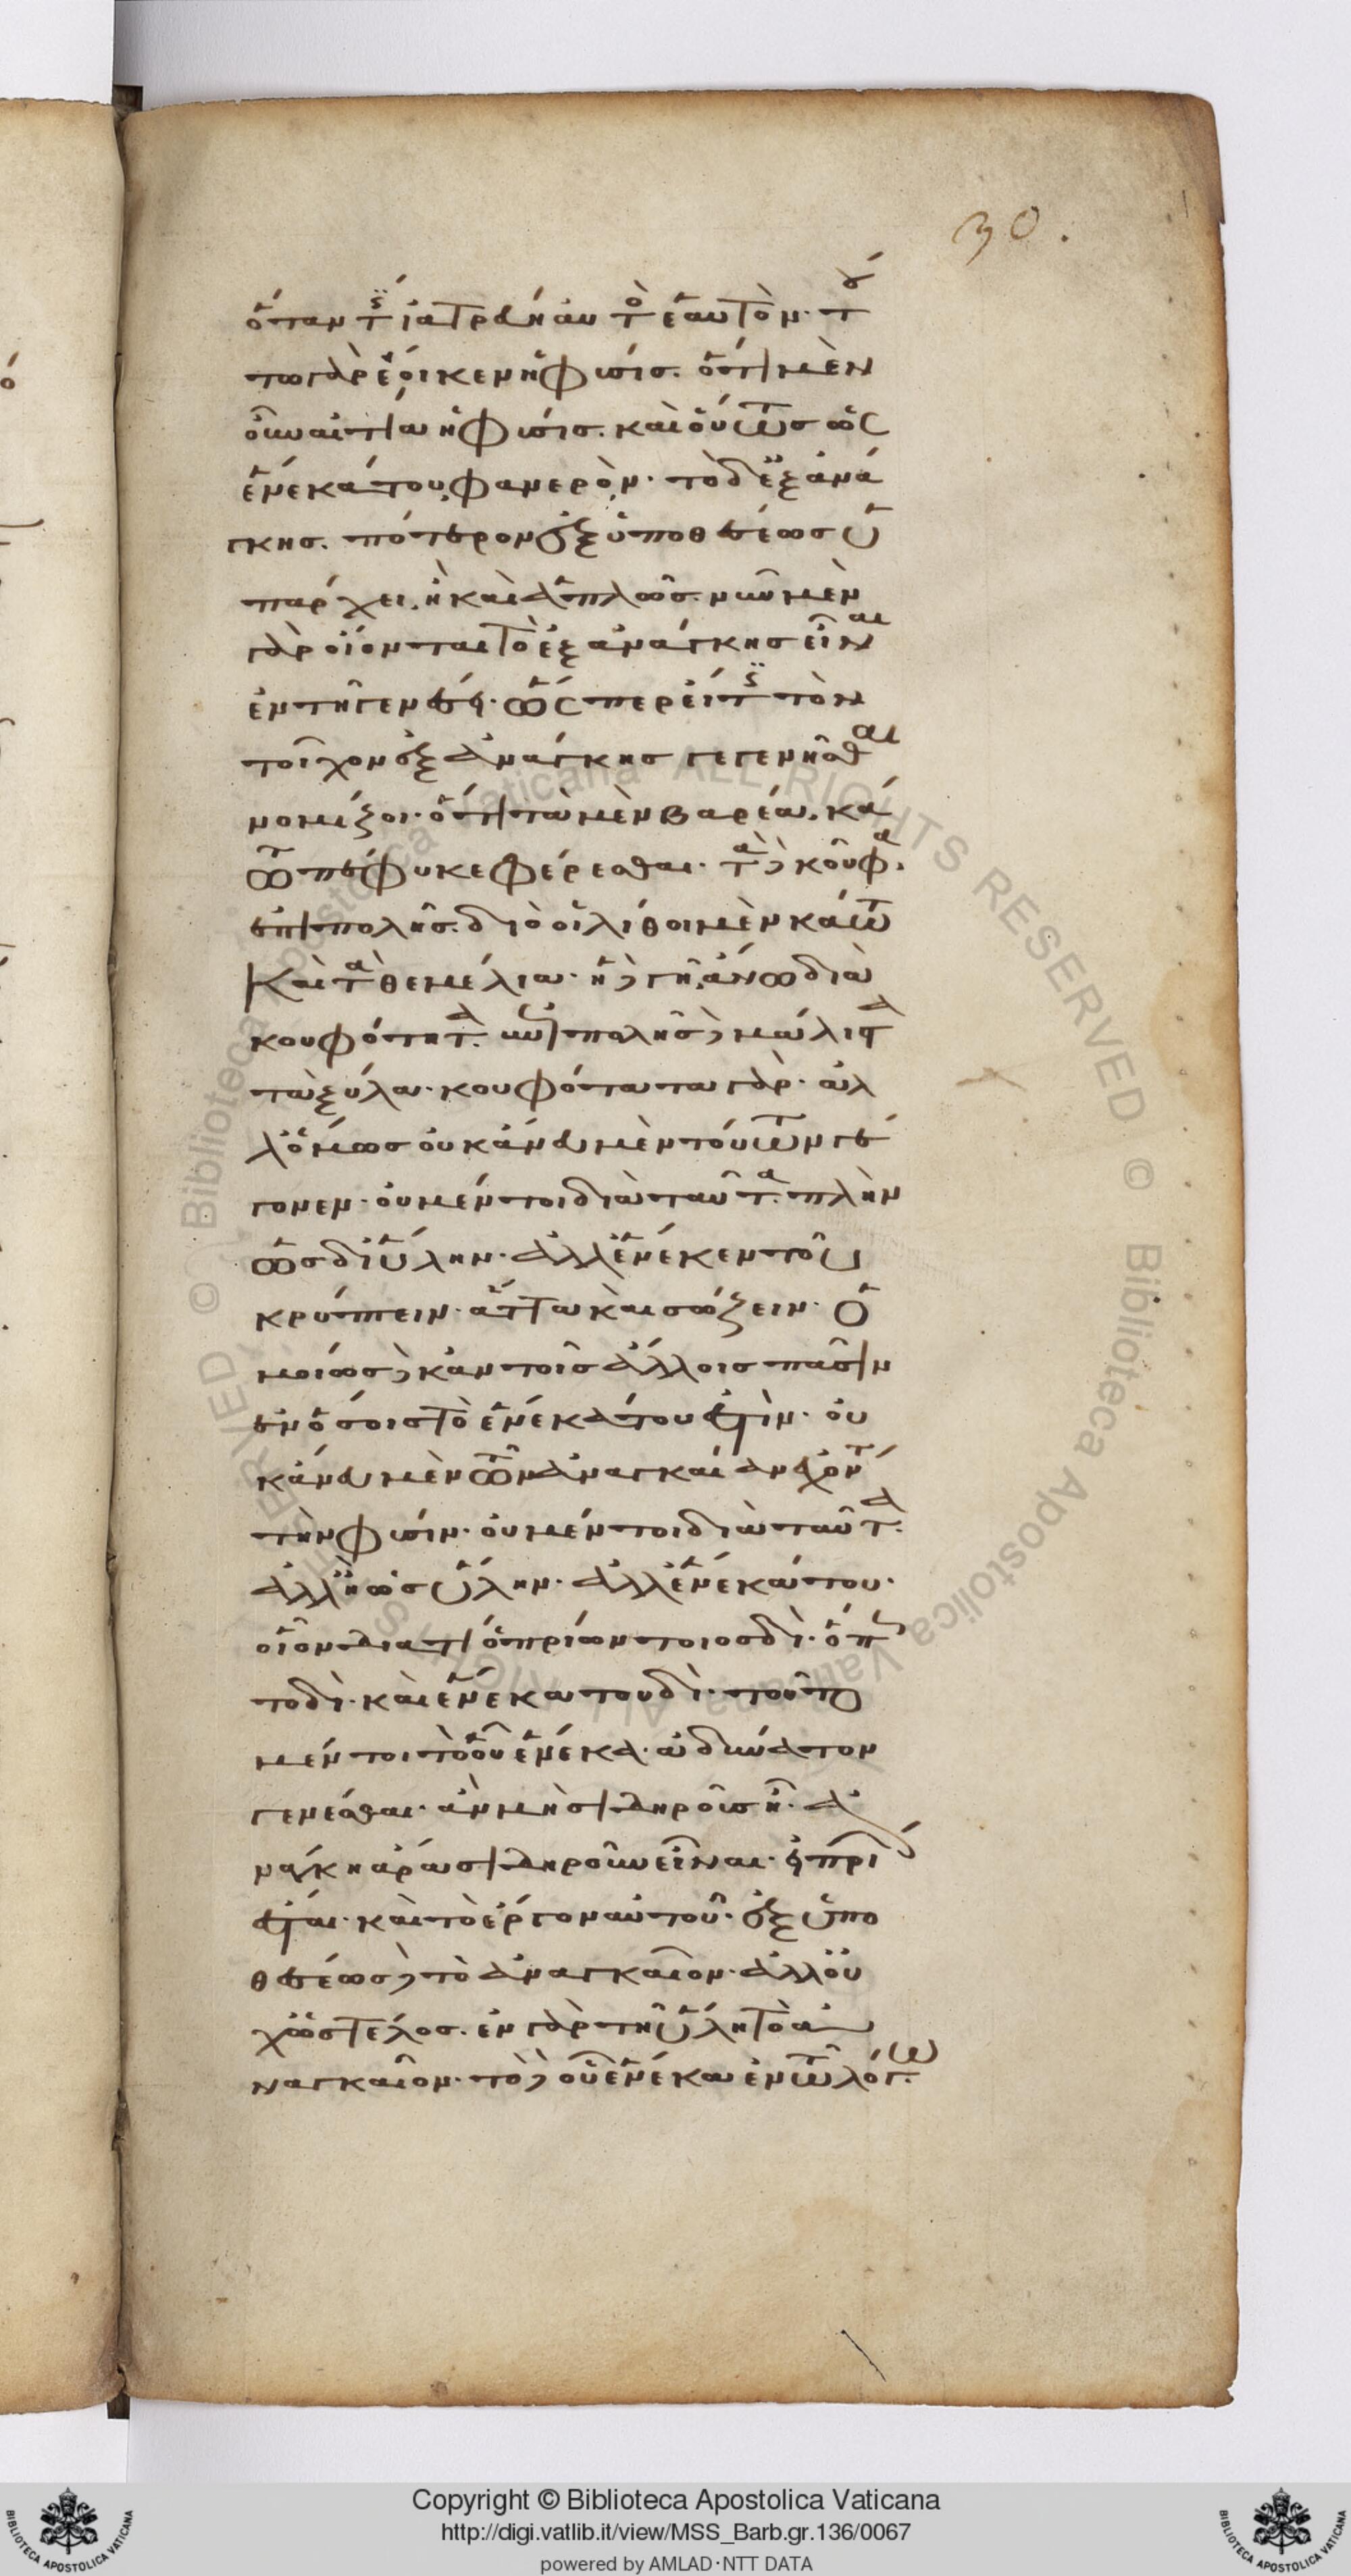 30.
ὅταν τις ἰατρεύῃ αὐτὸς ἑαυτόν· τού
τω γὰρ ἔοικεν ἡ φύσις. ὅτι μὲν
οὖν αἰτία ἡ φύσις. καὶ οὕτως ὡς
ἕνεκά του, φανερόν· τὸ δ' ἐξ ἀνά
γκης. πότερον ἐξ ὑποθέσεως ὑ
πάρχει, ἢ καὶ ἁπλῶς. νῦν μὲν
γὰρ οἴονται τὸ ἐξ ἀνάγκης εἶναι
ἐν τῆ γενέσει· ὥσπερ εἴ τις τὸν
τοῖχον ἐξ ἀνάγκης γεγενῆσθαι
νομίζοι· ὅτι τὰ μὲν βαρέα, κά
τω πέφυκε φέρεσθαι· τὰ δὲ κοῦφα.
ἐπιπολῆς. διὸ οἱ λίθοι μὲν κάτω
καὶ τὰ θεμέλια· ἡ δὲ γῆ, ἄνω διὰ
κουφότητα. ἐπιπολῆς δὲ μάλιστα
τὰ ξύλα· κουφότατα γάρ· ἀλ
λ' ὅμως οὐκ ἄνευ μὲν τούτων γέ
γονεν· οὐ μέντοι διὰ ταῦτα. πλὴν
ὡς δι' ὕλην· ἀλλ' ἕνεκεν τοῦ
κρύπτειν· ἄττα καὶ σώζειν· ὁ
μοίως δὲ κἀν τοῖς ἄλλοις πᾶσιν
ἐν ὅσοις τὸ ἕνεκά του ἐστίν· οὐ
κ ἄνευ μὲν τῶν ἀναγκαίαν ἐχόντων
τὴν φύσιν· οὐ μέντοι διὰ ταῦτα.
ἀλλ' ἢ ὡς ὕλην· ἀλλ' ἕνεκά του·
οἷον διὰ τί ὁ πρίων τοιοσδί· ὅπως
τοδί· καὶ ἕνεκα τουδί· τοῦτο
μέντοι τὸ οὗ ἕνεκα· ἀδύνατον
γενέσθαι· ἂν μὴ σιδηροῦς ᾖ· ἀ
νάγκη ἄρα σιδηροῦν εἶναι· εἰ πρίων
ἔσται· καὶ τὸ ἔργον αὐτοῦ· ἐξ ὑπο
θέσεως δὲ τὸ ἀναγκαῖον· ἀλλ' οὐ
χ ὡς τέλος. ἐν γὰρ τῆ ὕλη τὸ ἀ
ναγκαῖον· τὸ δὲ οὗ ἕνεκα ἐν τῶ λόγω.
Copyright © Biblioteca Apostolica Vaticana
http://digi.vatlib.it/view/MSS_Barb.gr.136/0067
powered by AMLAD·NTT DATA